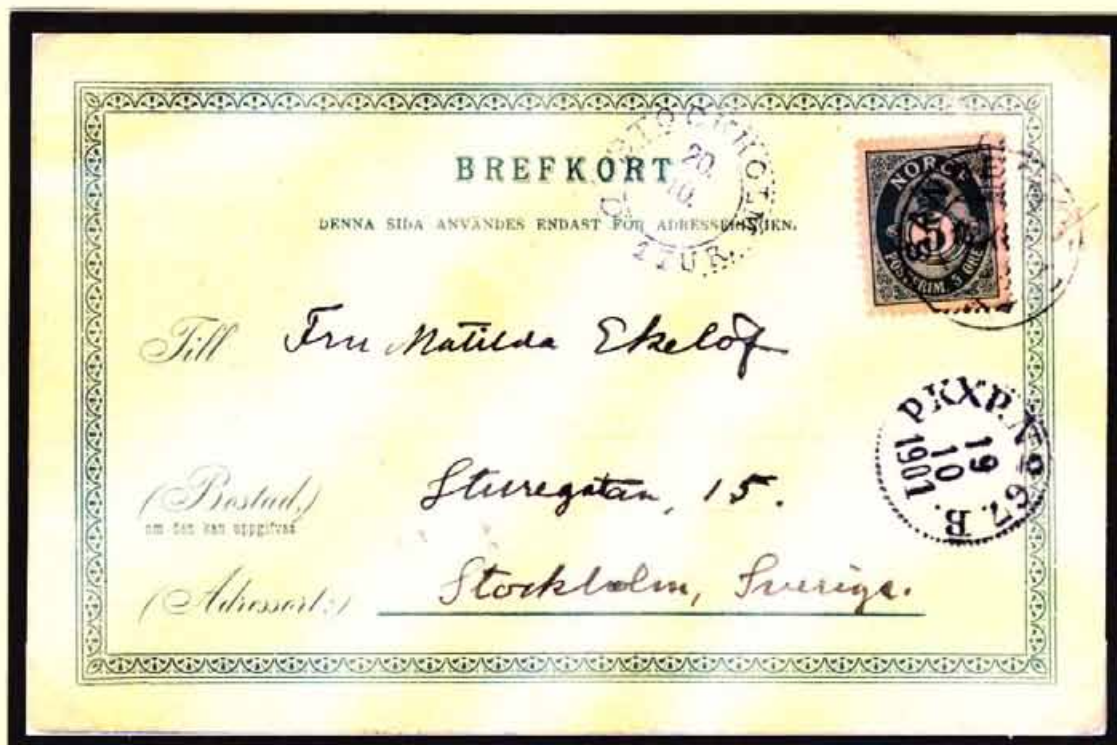 BREFKORT
DENNA SIDA ANVÄNDES ENDAST FÖR ADRESSERINGEN.
STOCKHOLM
20.
10.
1 TUR
NORGE
5
POSTFRIM. 5 ØRE
Till Fru Matilda Ekelöf
P.K.X.P. No 67. B.
19
10
1901
(Bostad,) Sturegatan, 15.
om den kan uppgifvas
(Adressort:) Stockholm, Sverige.